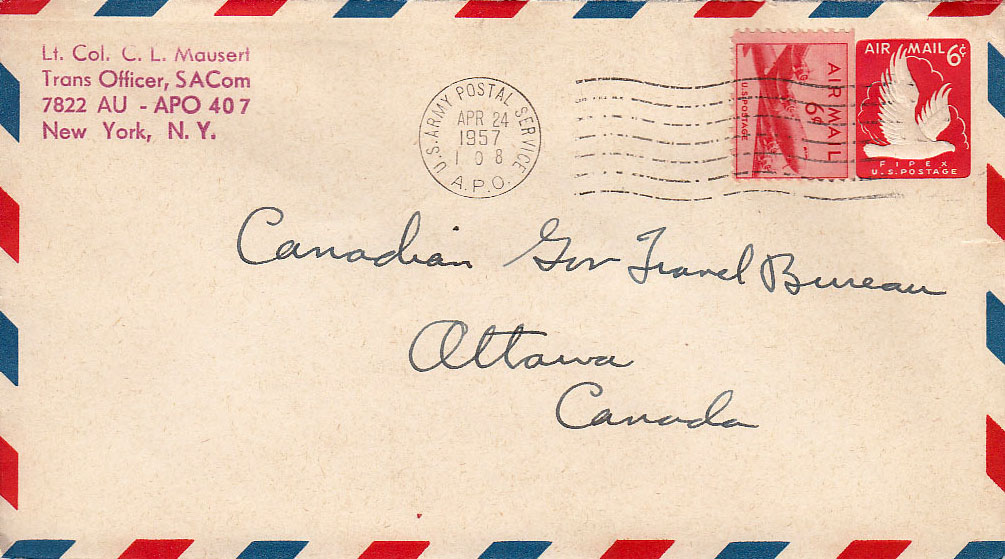 Lt. Col. C. L. Mausert
Trans Officer, SACom
7822 AU - APO 407
New York, N. Y.
U.S. ARMY POSTAL SERVICE
APR 24
1957
108
A.P.O.
AIR MAIL
6¢
U.S. POSTAGE
AIR MAIL 6¢
FIPEX
U.S. POSTAGE
Canadian Gov Travel Bureau
Ottawa
Canada